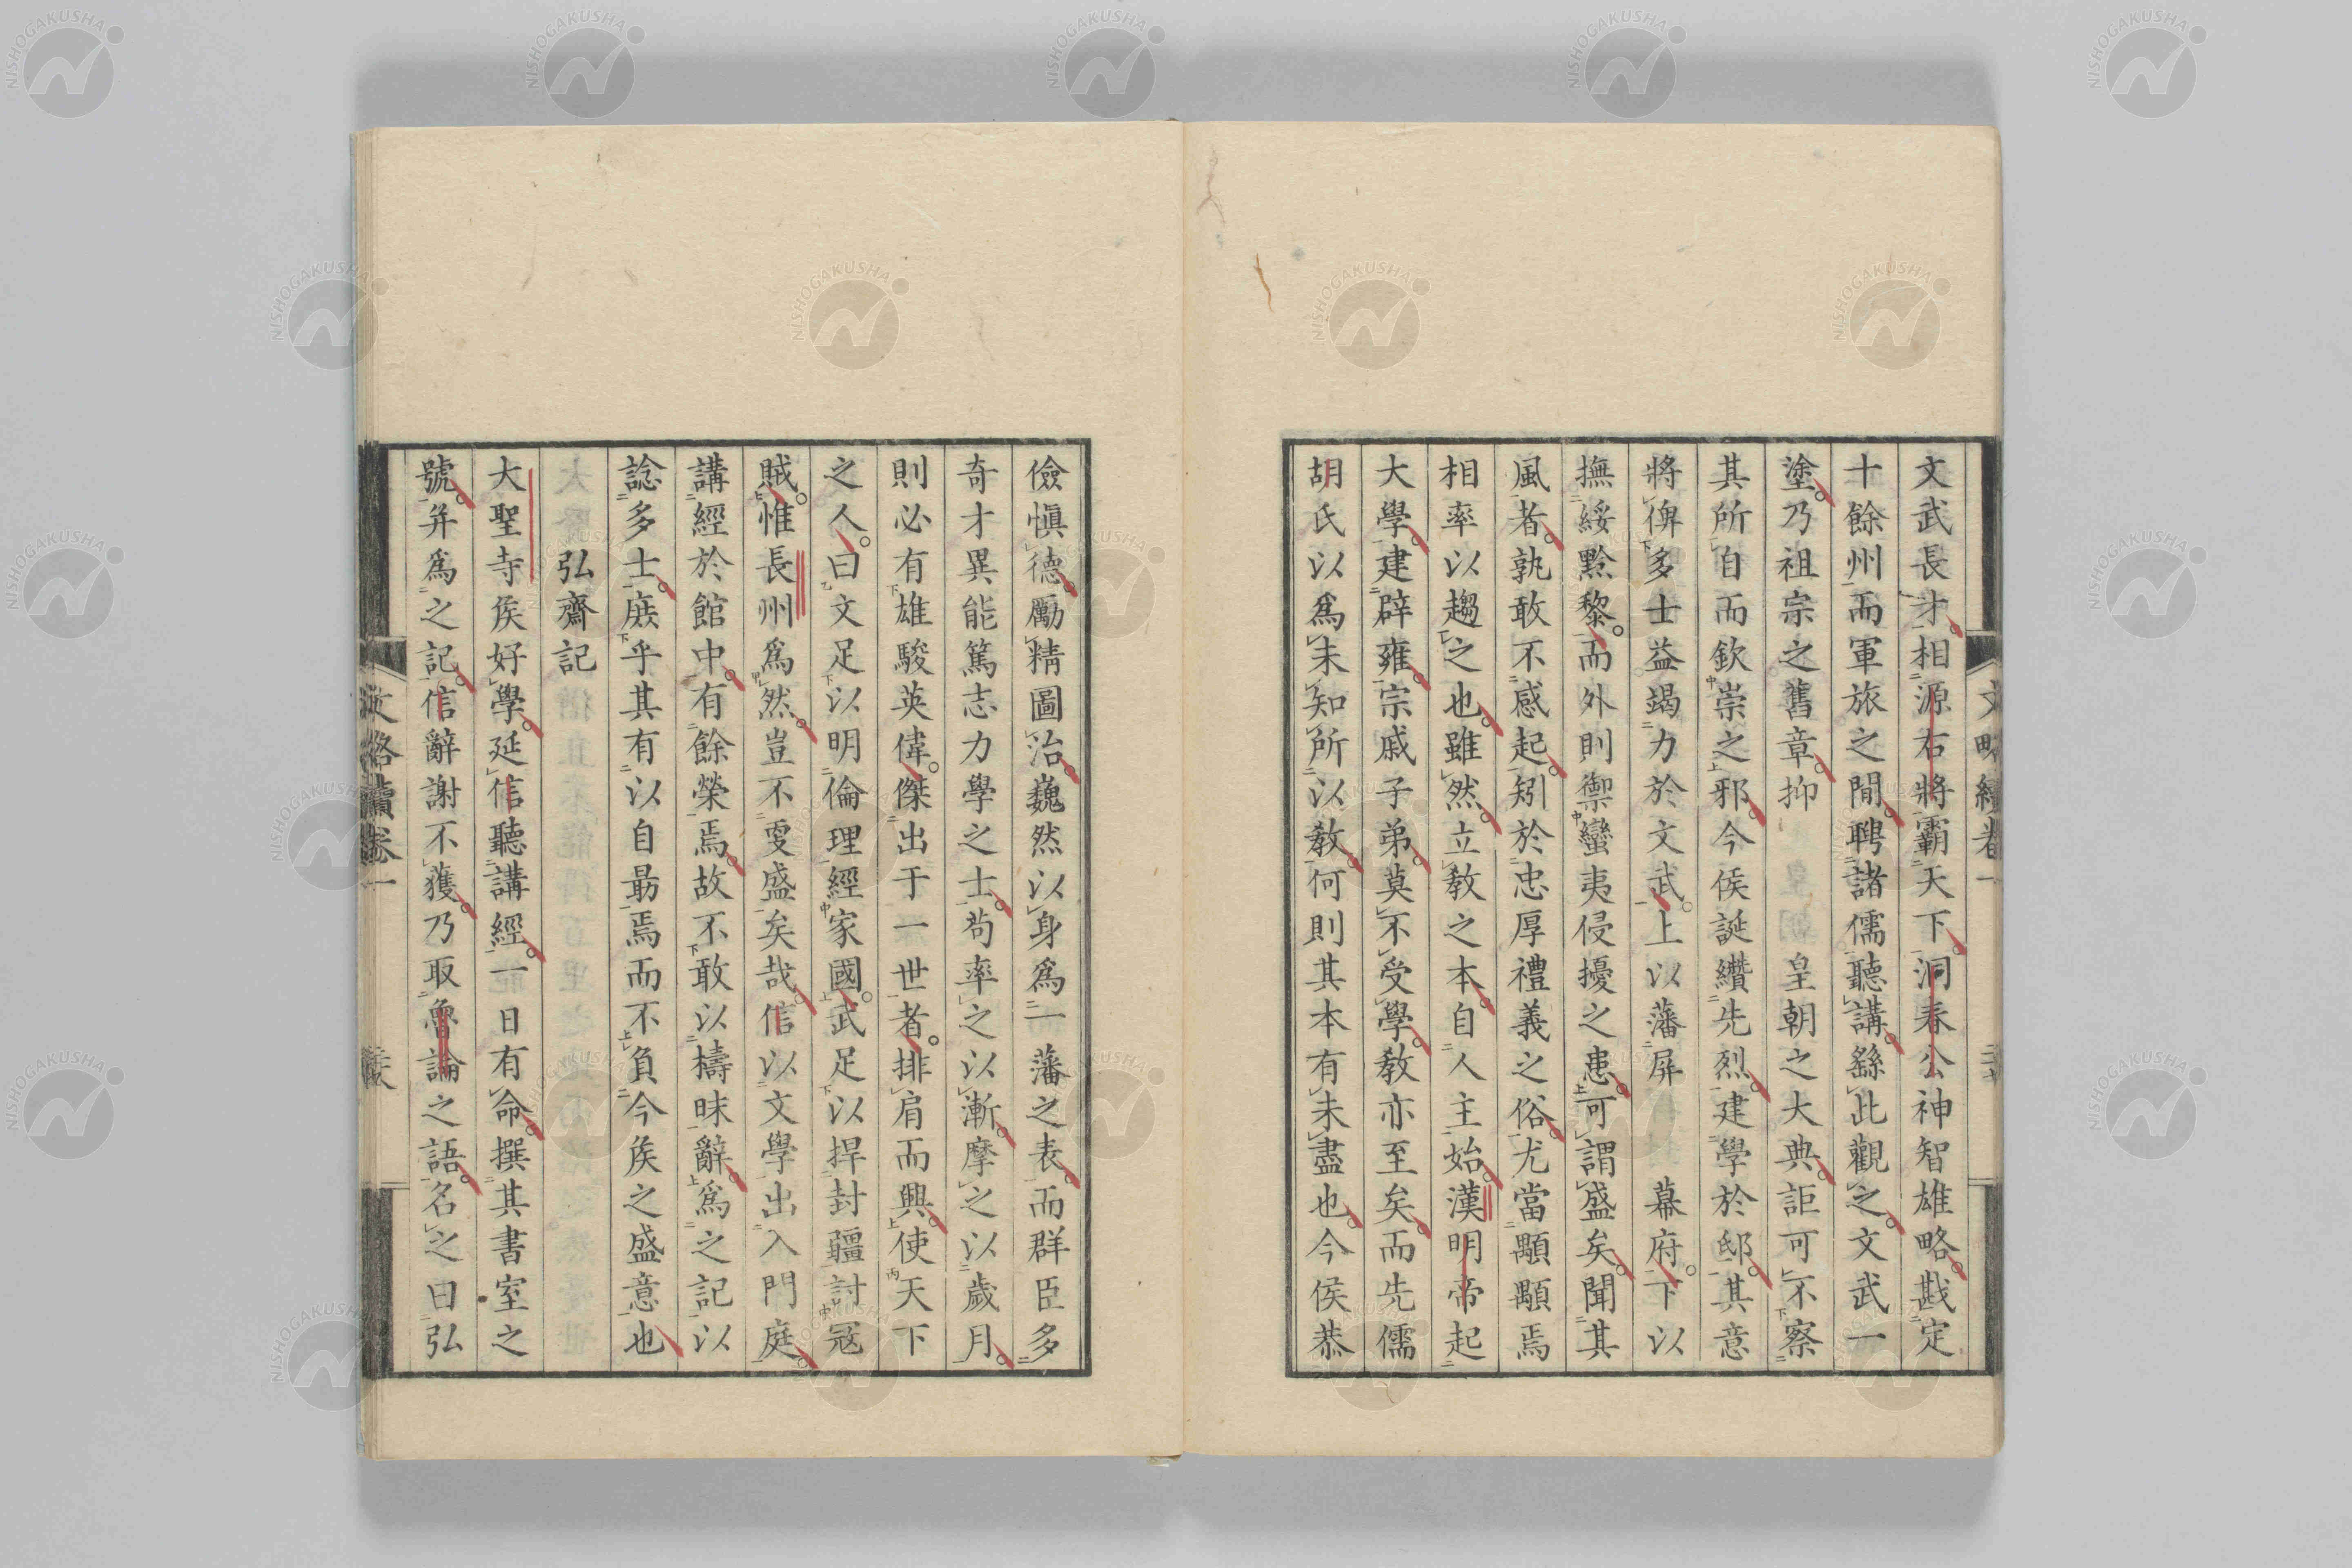 文武長才相源右將霸天下洞春公神智雄略戡定
十餘州而軍旅之間聘諸儒聽講繇此觀之文武一
塗乃祖宗之舊章抑皇朝之大典詎可不察
其所自而欽崇之邪今侯誕纘先烈建學於邸其意
將俾多士益竭力於文武上以藩屏幕府下以
撫綏黔黎而外則禦蠻夷侵擾之患可謂盛矣聞其
風者孰敢不感起矧於忠厚禮義之俗尤當顒顒焉
相率以趨之也雖然立教之本自人主始漢明帝起
大學建辟雍宗戚子弟莫不受學教亦至矣而先儒
胡氏以爲未知所以教何則其本有未盡也今侯恭
文略續卷一
儉愼德勵精圖治巍然以身爲一藩之表而群臣多
奇才異能篤志力學之士苟率之以漸摩之以歲月
則必有雄駿英偉傑出于一世者排肩而興使天下
之人曰文足以明倫理經家國武足以捍封疆討冦
賊惟長州爲然豈不𡨚盛矣哉信以文學出入門庭
講經於館中有餘榮焉故不敢以檮昧辭爲之記以
諗多士庻乎其有以自勗焉而不負今矦之盛意也
弘齋記
大聖寺矦好學延信聽講經一日有命撰其書室之
號并爲之記信辭謝不獲乃取魯論之語名之曰弘
文略續卷一